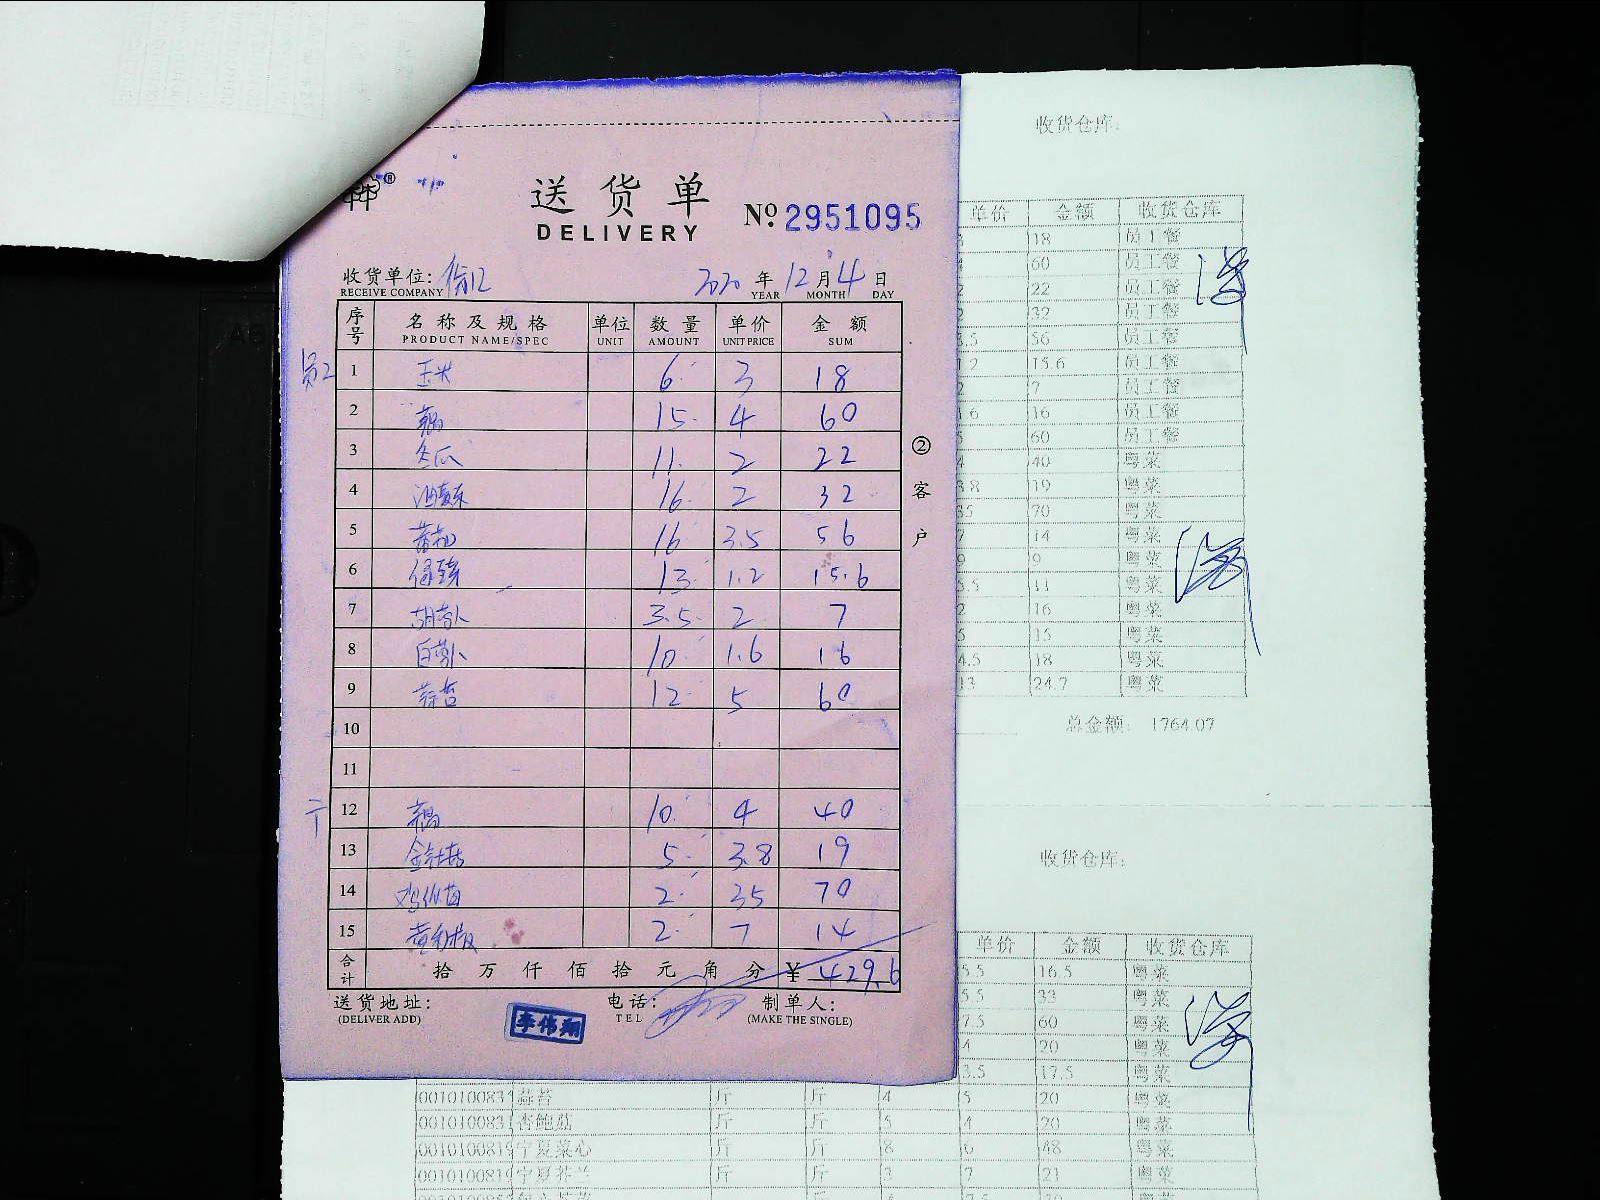 送货单
DELIVERY
№ 2951095
收货单位:
RECEIVE COMPANY
2020 年 12 月 4 日
YEAR MONTH DAY
序号 名称及规格 单位 数量 单价 金额
PRODUCT NAME/SPEC UNIT AMOUNT UNIT PRICE SUM
员工 1 玉米 6 3 18
2 藕 15 4 60
3 冬瓜 11 2 22
4 油麦菜 16 2 32
5 16 3.5 56
6 13 1.2 15.6
7 胡萝卜 3.5 2 7
8 白萝卜 10 1.6 16
9 蒜苔 12 5 60
10
11
12 藕 10 4 40
13 金针菇 5 3.8 19
14 2 35 70
15 2 7 14
合计 拾 万 仟 佰 拾 元 角 分 ¥ 429.6
送货地址: 电话: 制单人:
(DELIVER ADD) TEL (MAKE THE SINGLE)
李伟翔
②客户
收货仓库:
单价 金额 收货仓库
18 员工餐
60 员工餐
22 员工餐
32 员工餐
56 员工餐
15.6 员工餐
7 员工餐
16 员工餐
60 员工餐
40 粤菜
19 粤菜
70 粤菜
14 粤菜
9 粤菜
11 粤菜
16 粤菜
15 粤菜
4.5 18 粤菜
13 24.7 粤菜
总金额: 1764.07
收货仓库:
单价 金额 收货仓库
5.5 16.5 粤菜
5.5 33 粤菜
7.5 60 粤菜
4 20 粤菜
3.5 17.5 粤菜
蒜苔 斤 斤 4 5 20 粤菜
杏鲍菇 斤 斤 5 4 20 粤菜
宁夏菜心 斤 斤 8 6 48 粤菜
宁夏芥兰 斤 斤 3 7 21 粤菜